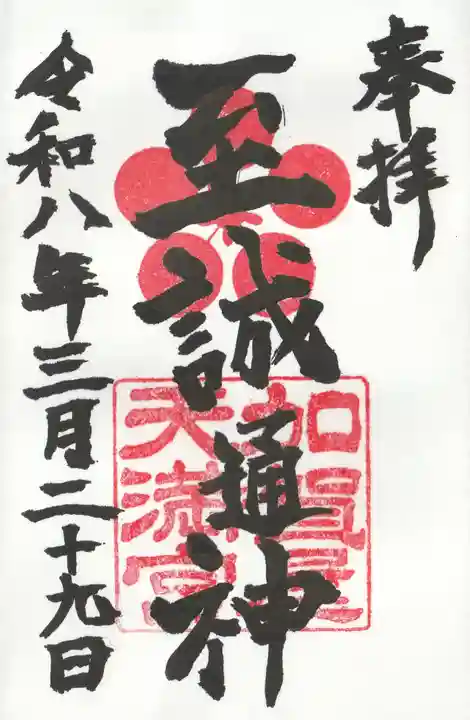 奉拝
至誠通神
加賀屋
天満宮
令和八年三月二十九日